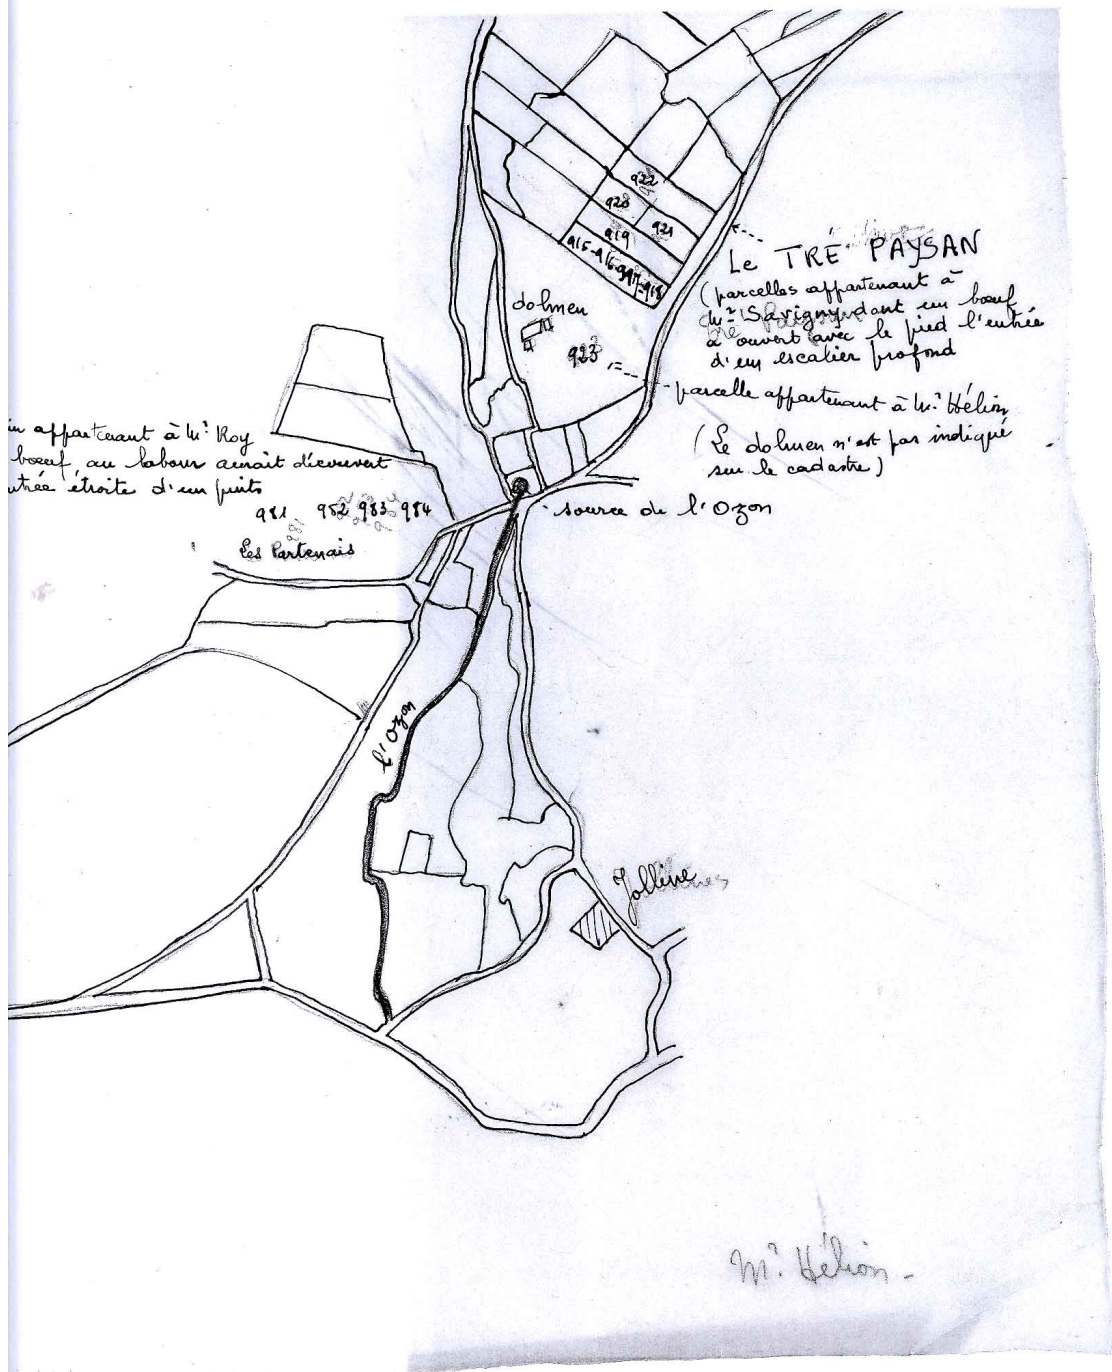 922
920
921
919
915-916-917-918
Le TRÉ PAYSAN
(parcelles appartenant à
Mr Savigny dont un bœuf
a ouvert avec le pied l'entrée
d'un escalier profond
dolmen
923
parcelle appartenant à Mr Hélion
(Le dolmen n'est pas indiqué
sur le cadastre)
in appartenant à Mr Roy
bœuf, au labour aurait découvert
ntrée étroite d'un puits
981 982 983 984
Les Partenais
source de l'Ozon
l'Ozon
Mr Hélion -